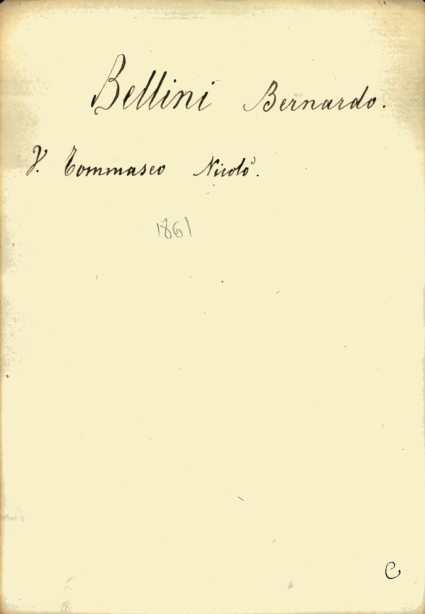 Bellini Bernardo.
V. Tommaseo Nicolò.
1861
C